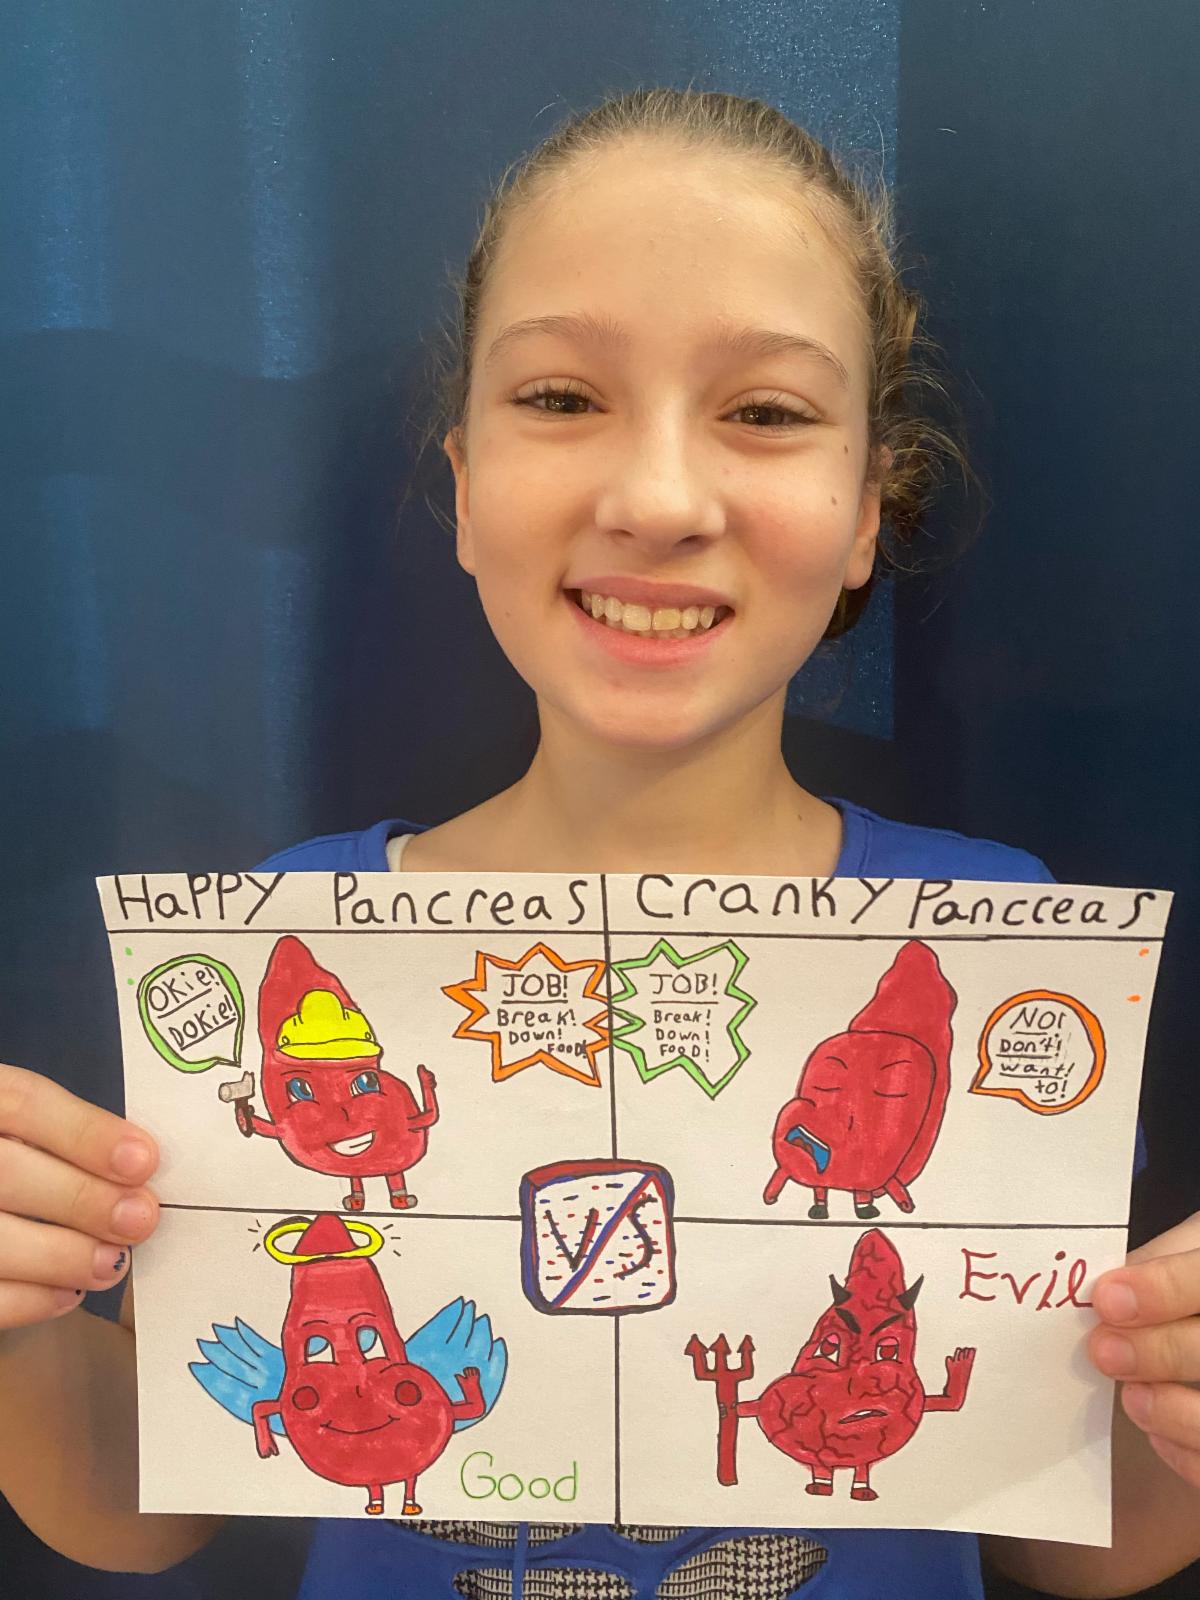 HaPPY Pancreas
Cranky Pancreas
OKie!
DOKie!
JOB!
Break!
Down!
FOOD!
JOB!
Break!
Down!
FOOD!
NO!
Don't!
want!
to!
VS
Good
Evil